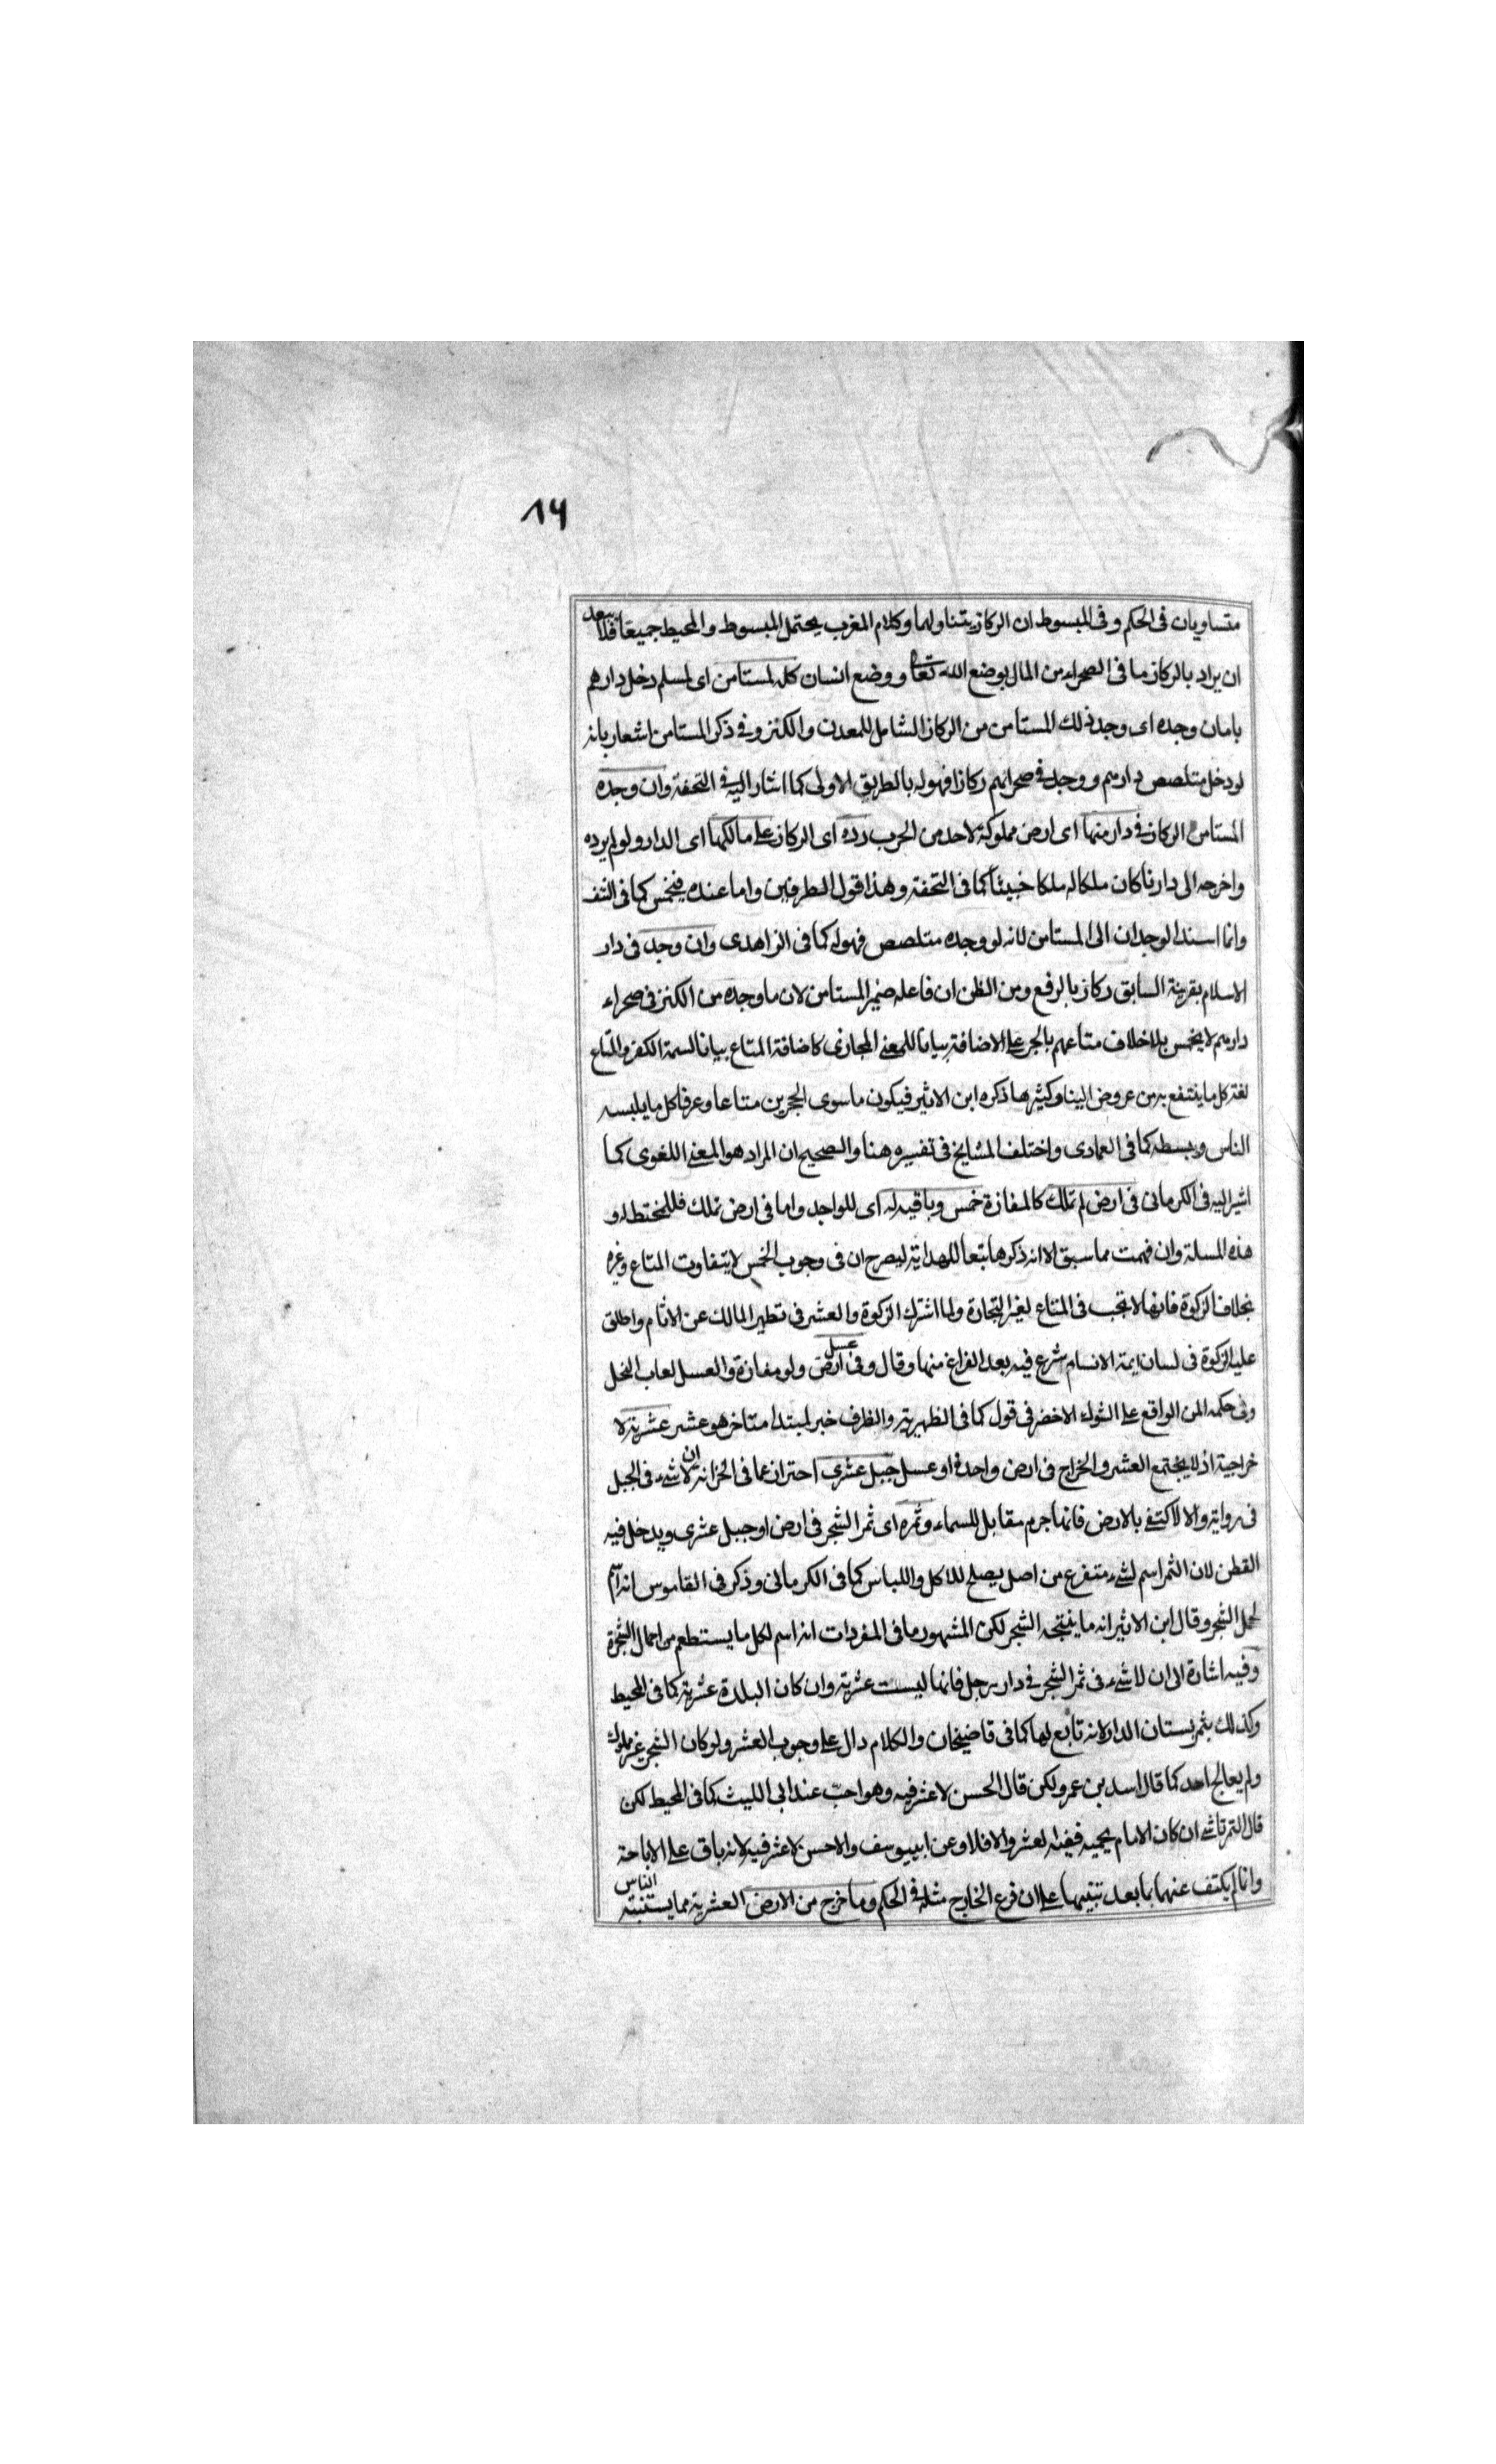 ١٦
متساويان فى الحكم وفى المبسوط ان الركاز يتناولهما وكلام المغرب يحتمل المبسوط والمحيط جميعا فلا يبعد
ان يراد بالركاز ما فى الصحراء من المال بوضع الله تعا ووضع انسان كله لمستامن اى لمسلم دخل دارهم
بامان وجده اى وجد ذلك المستامن من الركاز الشامل للمعدن والكنز وفى ذكر المستامن اشعار بانه
لو دخل متلصص دارهم ووجد فى صحرائهم ركازا فهو له بالطريق الاولى كما اشار اليه فى التحفة وان وجده
المستامن الركاز فى دار منها اى ارض مملوكة لاحد من الحرب رده اى الركاز على مالكها اى الدار ولو لم يرده
واخرجه الى دارنا كان ملكا له ملكا خبيثا كما فى التحفة وهذا قول الطرفين واما عنده فيخمس كما فى النتف
وانما اسند الوجدان الى المستامن لانه لو وجده متلصص فهو له كما فى الزاهدى وان وجد فى دار
الاسلام بقرينة السابق ركاز بالرفع ومن الظن ان فاعله ضمير المستامن لان ما وجده من الكنز فى صحراء
دارهم لا يخمس بلا خلاف متاعهم بالجر على الاضافة بيانا للمعنى المجازى كاضافة المتاع بيانا لسمة الكفر والمتاع
لغة كل ما ينتفع به من عروض الدنيا وكثيرها ذكره ابن الاثير فيكون ما سوى الحجرين متاعا وعرفا كل ما يلبسه
الناس ويبسطه كما فى العمادى واختلف المشايخ فى تفسيره هنا والصحيح ان المراد هو المعنى اللغوى كما
اشير اليه فى الكرمانى فى ارض لم تملك كالمفازة خمس وباقيه له اى للواجد واما فى ارض تملك فللمختط له و
هذه المسلة وان فهمت مما سبق الا انه ذكرها تبعا للهداية ليصرح ان فى وجوب الخمس لا يتفاوت المتاع وغيره
بخلاف الزكوة فانها لا تجب فى المتاع لغير التجارة ولما اشترك الزكوة والعشر فى تطهير المالك عن الاثام واطلق
عليه الزكوة فى لسان ايمة الانسام شرع فيه بعد الفراغ منها وقال وفى عسل ارض ولو مفازة والعسل لعاب النحل
وفى حكمه المن الواقع على الشوك الاخضر فى قول كما فى الظهيرية والظرف خبر لمبتدا متاخر هو عشر عشرية لا
خراجية اذ لا يجتمع العشر والخراج فى ارض واحدة او عسل جبل عشرى احتراز عما فى الخزانة ان لا شىء فى الجبل
فى رواية والا لاكتفى بالارض فانها جرم مقابل للسماء وثمره اى ثمر الشجر فى ارض او جبل عشرى ويدخل فيه
القطن لان الثمر اسم لشىء متفرع من اصل يصلح للاكل واللباس كما فى الكرمانى وذكر فى القاموس انه اسم
لحمل الشجر وقال ابن الاثير انه ما ينتجه الشجر لكن المشهور ما فى المفردات انه اسم لكل ما يستطعم من احمال الشجرة
وفيه اشارة الى ان لا شىء فى ثمر الشجر فى دار رجل فانها ليست عشرية وان كان البلدة عشرية كما فى المحيط
وكذلك ثمر بستان الدار لانه تابع لها كما فى قاضيخان والكلام دال على وجوب العشر ولو كان الشجر غير مملوك
ولم يعالج احد كما قال اسد بن عمرو لكن قال الحسن لا عشر فيه وهو احب عند ابى الليث كما فى المحيط لكن
قال التمرتاشى ان كان الامام يحميه ففيه العشر والا فلا وعن ابى يوسف والاحسن لا عشر فيه لانه باق على الاباحة
وانما لم يكتف عنهما بما بعد تنبيها على ان فرع الخارج مثله فى الحكم وما خرج من الارض العشرية مما يستنبته الناس